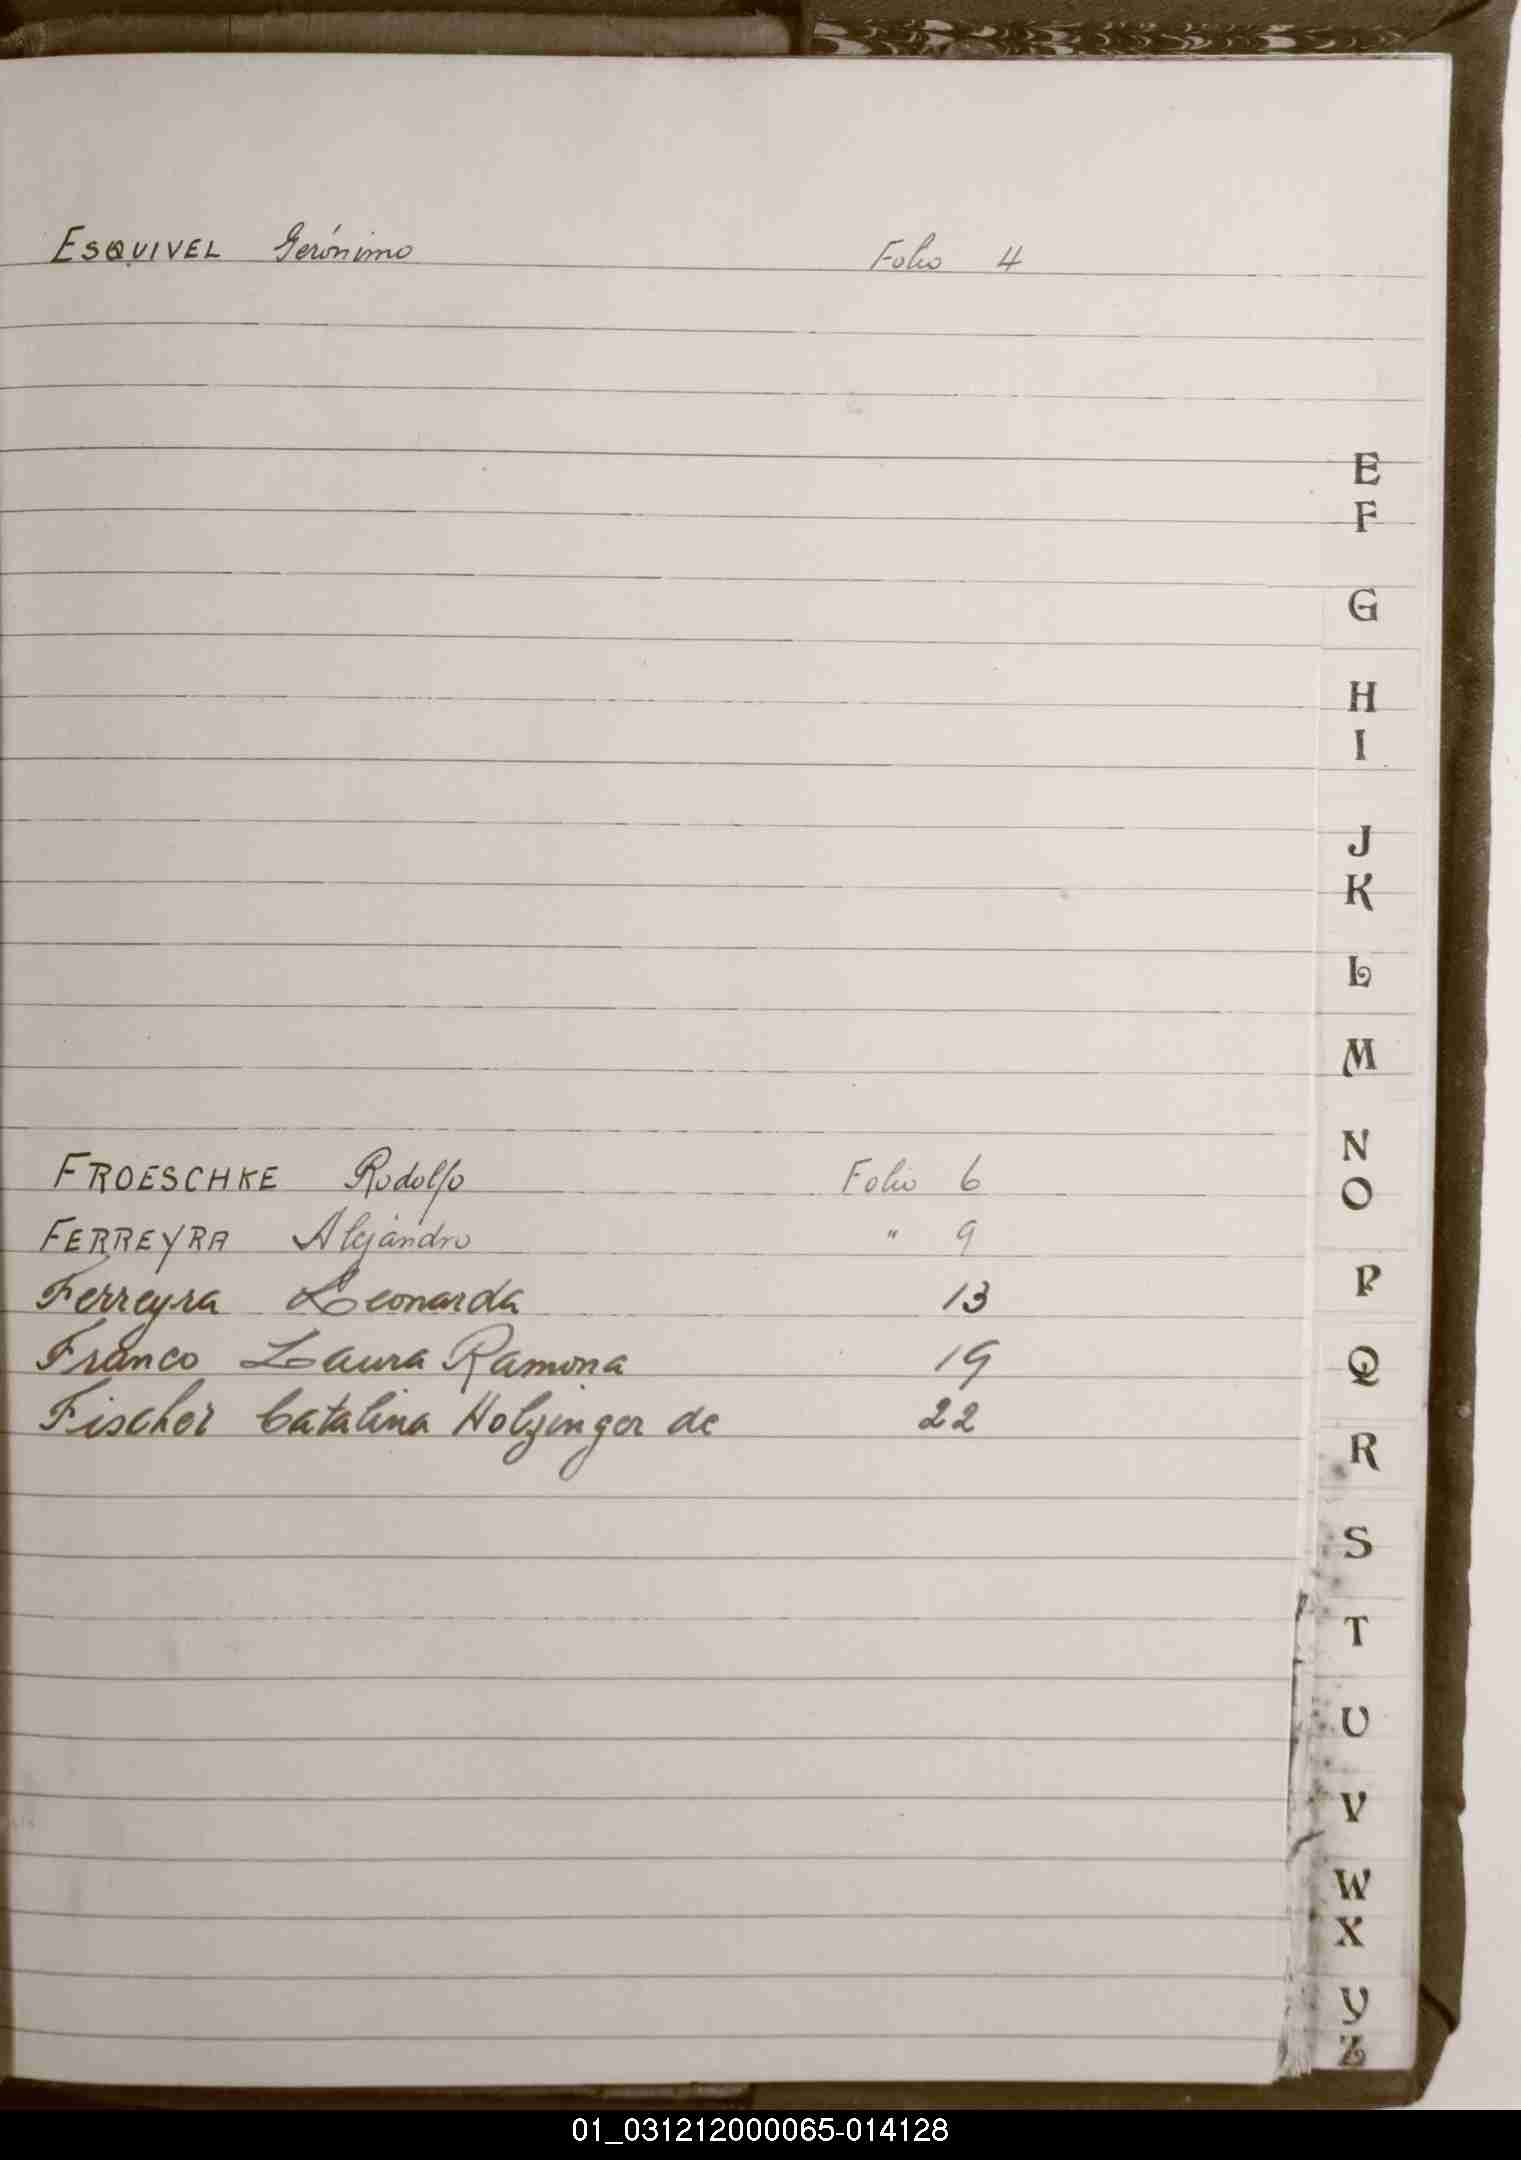 ESQUIVEL Gerónimo Folio 4
E
F
G
H
I
J
K
L
M
N
O
P
Q
R
S
T
U
V
W
X
Y
Z
FROESCHKE Rodolfo Folio 6
FERREYRA Alejandro " 9
Ferreyra Leonarda 13
Franco Laura Ramona 19
Fischer Catalina Holzinger de 22
01_031212000065-014128